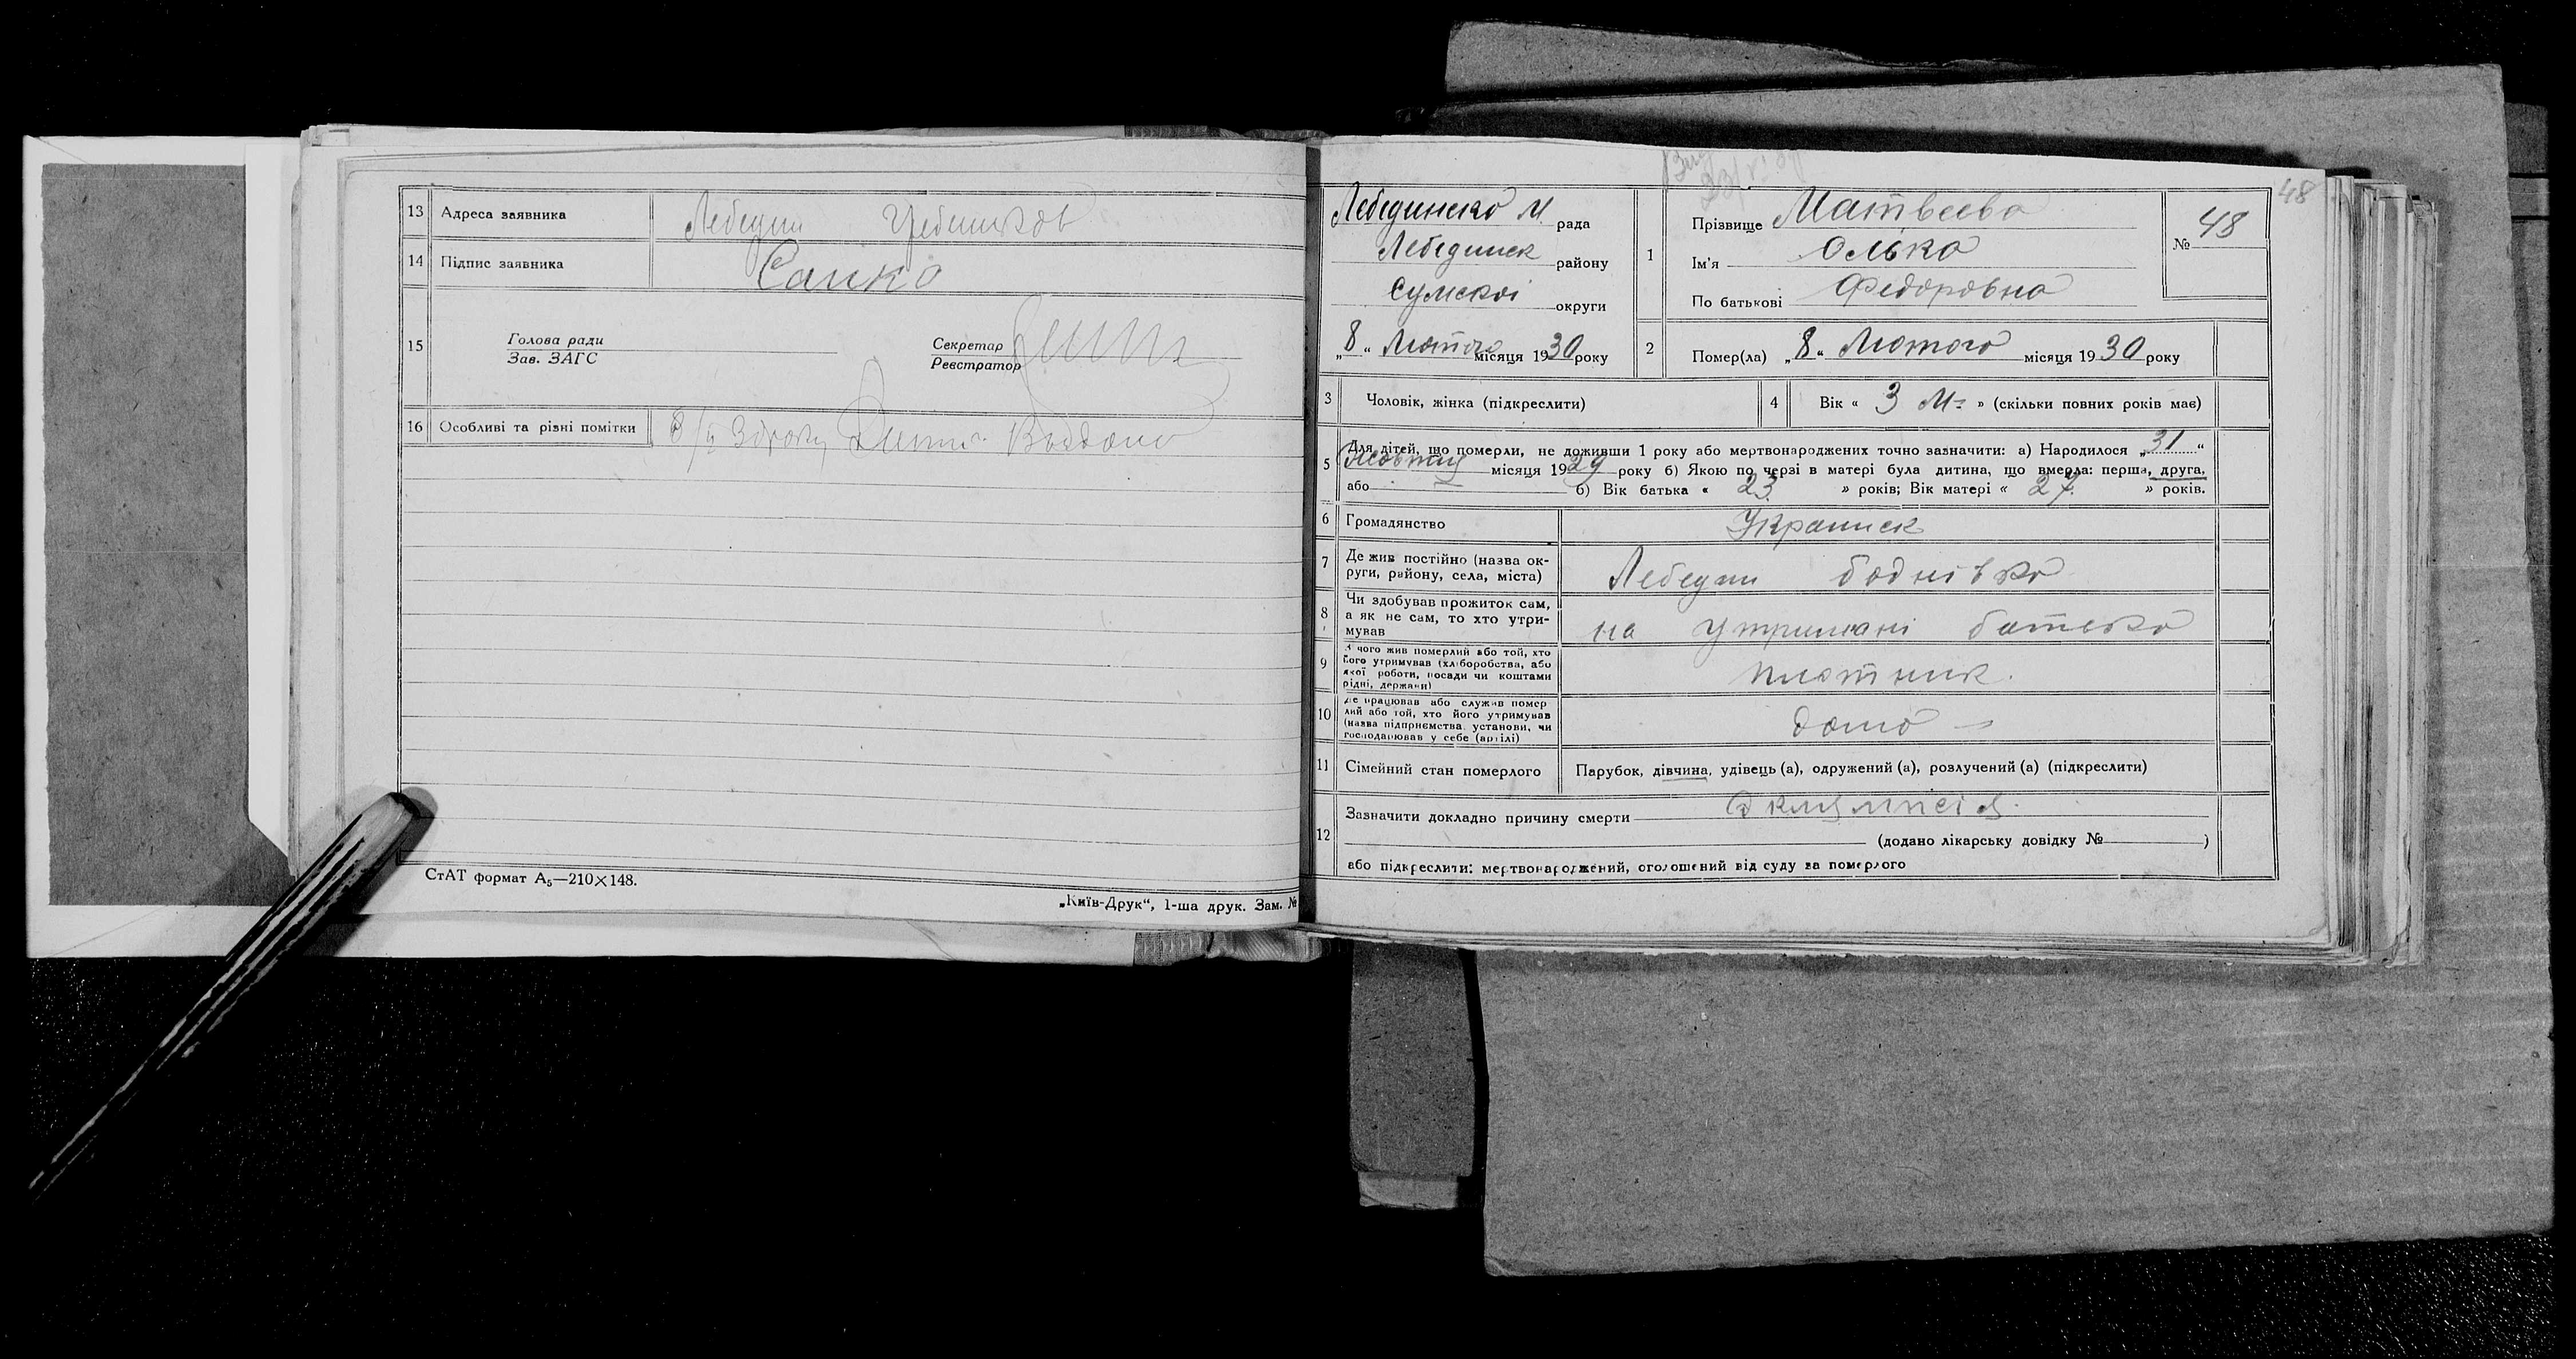 13 Адреса заявника Лебедин Гребенников
14 Підпис заявника Сапко
15 Голова ради
Зав. ЗАГС
Секретар
Реєстратор
16 Особливі та різні помітки
СтАТ формат А₅—210×148.
„Київ-Друк“, 1-ша друк. Зам. №
48
Лебединско М. рада
Лебединск району
Сумскоі округи
„8“ Лютого місяця 1930 року
1 Прізвище Матвеева
Ім'я Олька
По батькові Федоровна
№ 48
2 Помер(ла) „8“ Лютого місяця 1930 року
3 Чоловік, жінка (підкреслити)
4 Вік « 3 М= » (скільки повних років має)
5 Для дітей, що померли, не доживши 1 року або мертвонароджених точно зазначити: а) Народилося „31“
Жовтня місяця 1929 року б) Якою по черзі в матері була дитина, що вмерла: перша, друга,
або б) Вік батька « 23 » років; Вік матері « 27 » років.
6 Громадянство Украинск
7 Де жив постійно (назва ок-
руги, району, села, міста) Лебедин
8 Чи здобував прожиток сам,
а як не сам, то хто утри-
мував на утримані батька
9 З чого жив померлий або той, хто
його утримував (хліборобства, або
якої роботи, посади чи коштами
рідні, держави) плотник.
10 Де працював або служив помер
лий або той, хто його утримував
(назва підприємства, установи, чи
господарював у себе (артілі) дома —
11 Сімейний стан померлого Парубок, дівчина, удівець (а), одружений (а), розлучений (а) (підкреслити)
12 Зазначити докладно причину смерти Эклямпсія.
(додано лікарську довідку № )
або підкреслити: мертвонароджений, оголошений від суду за померлого